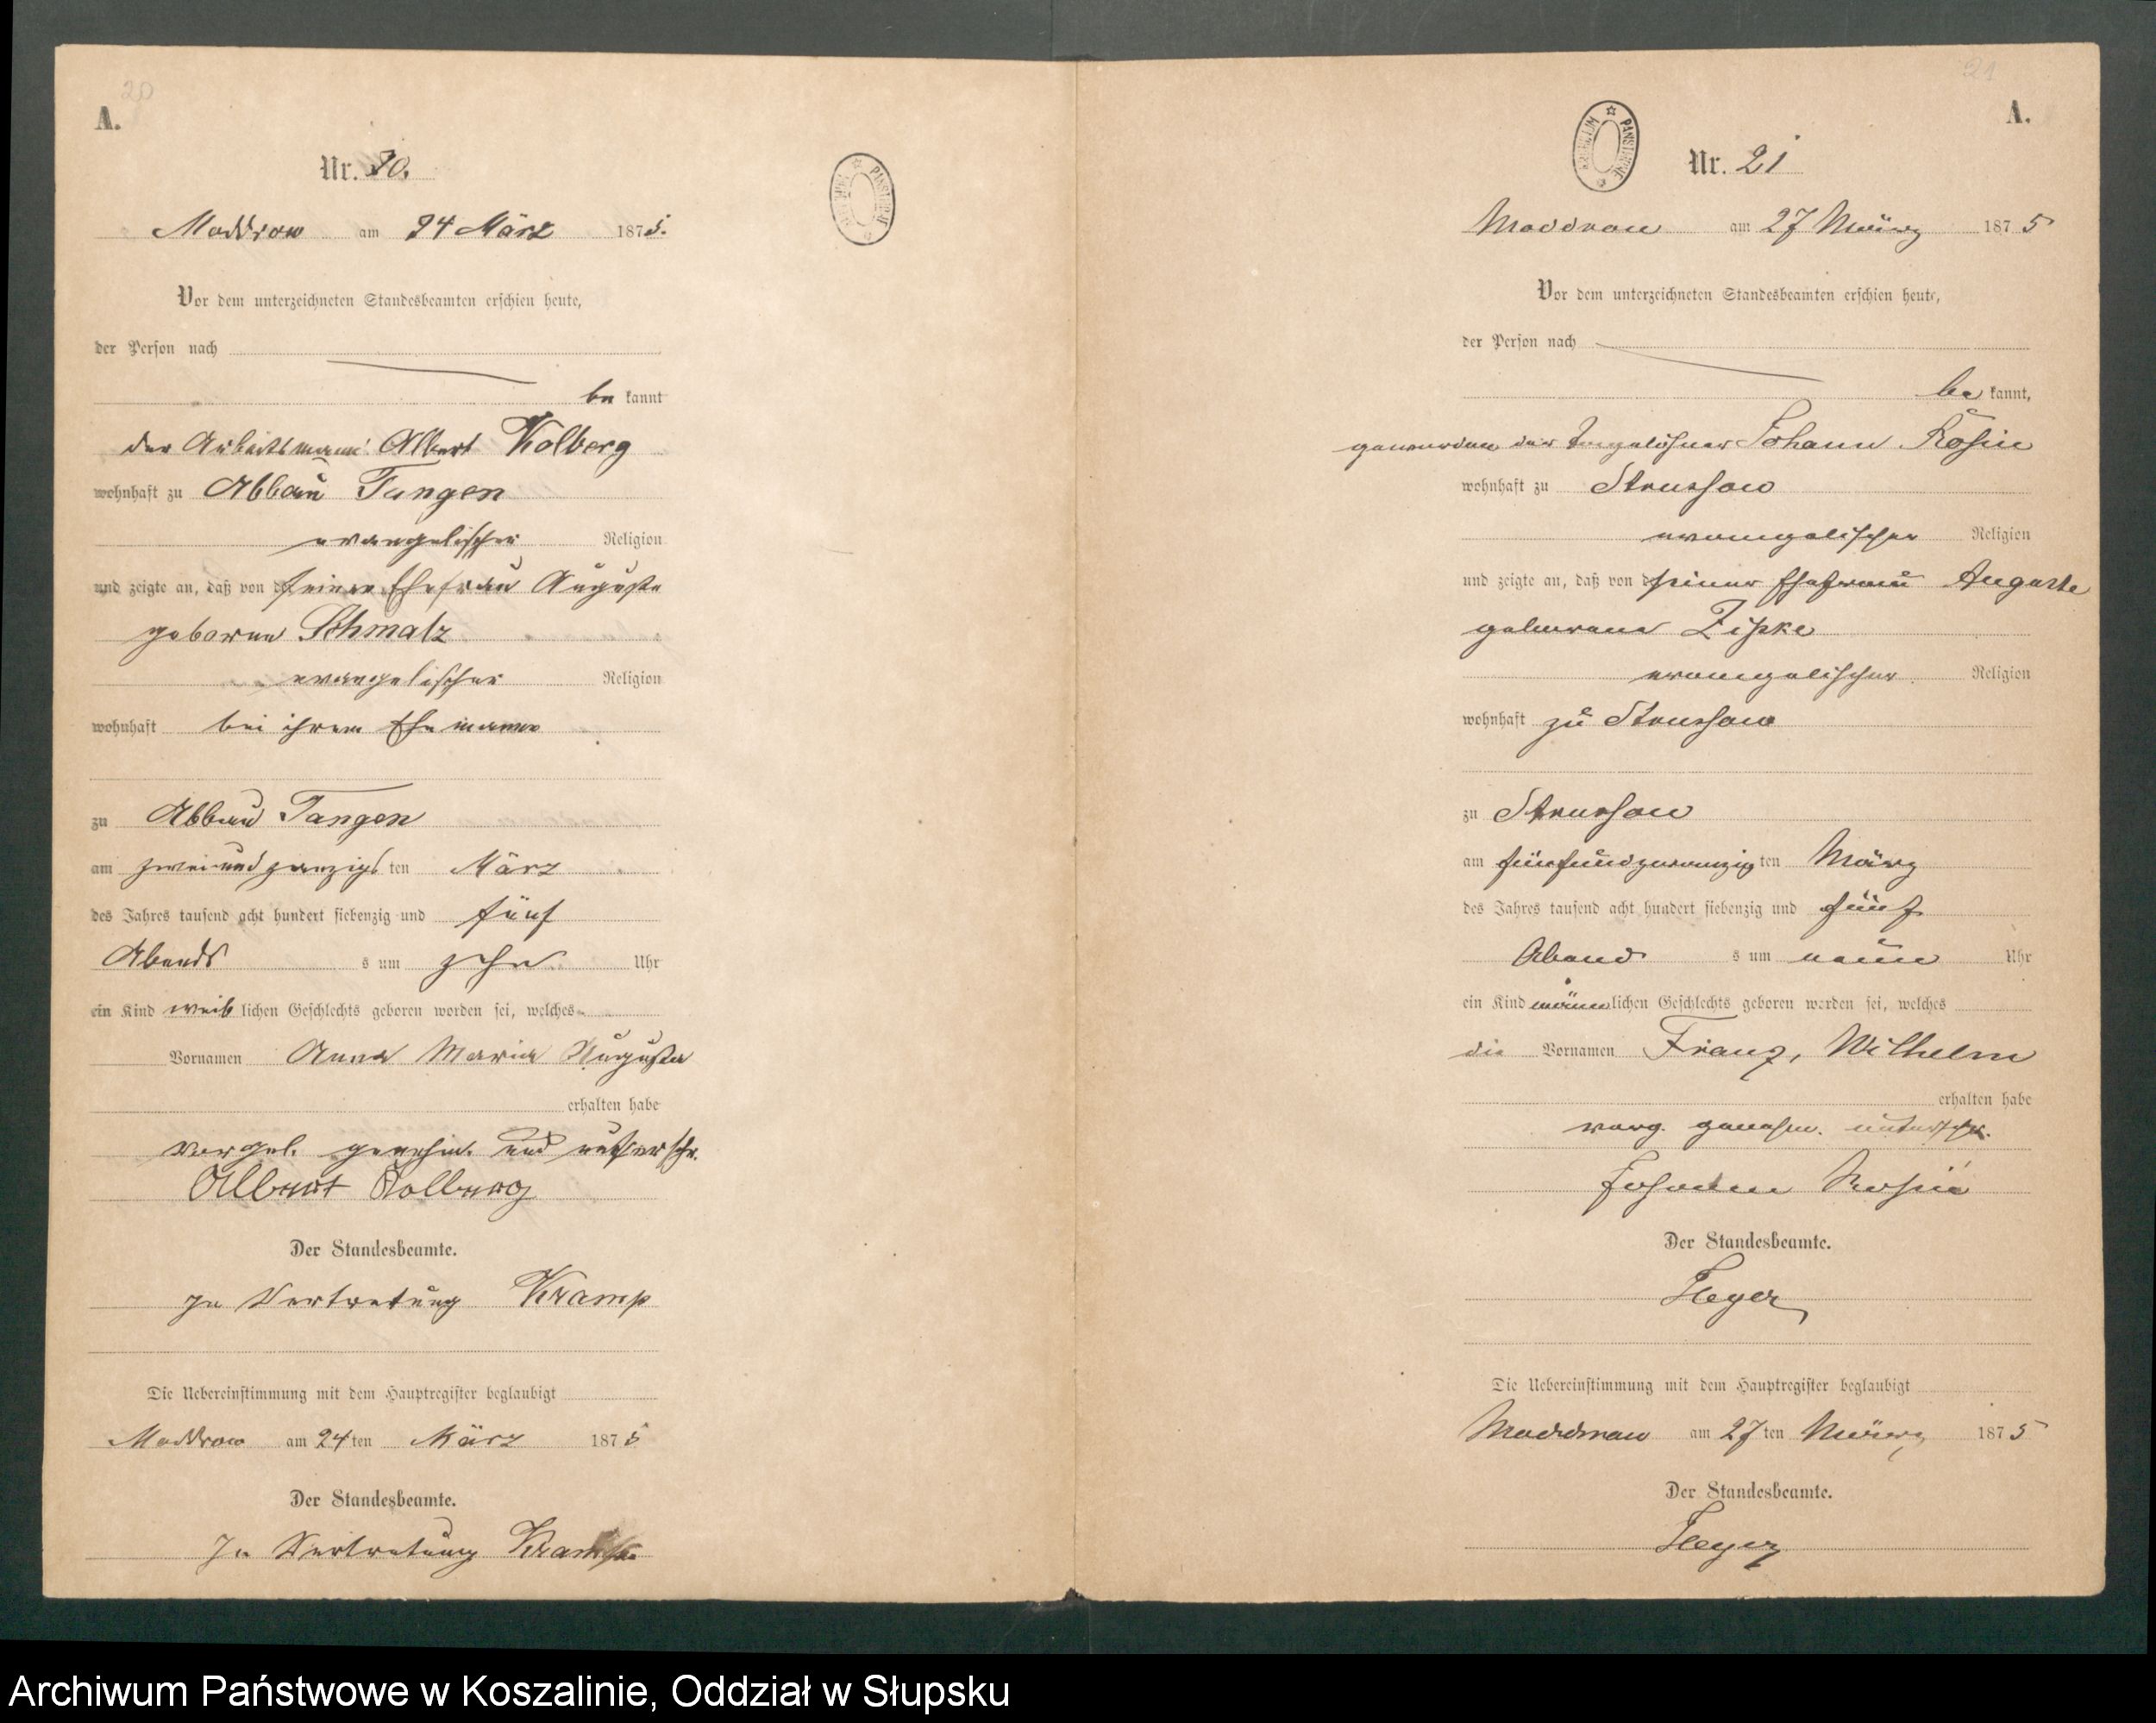 20
A.
Nr. 20.
Moddrow am 24 März 1875.
Vor dem unterzeichneten Standesbeamten erschien heute,
der Person nach
be kannt
der Arbeitsmann Albert Kolberg
wohnhaft zu Abbau Tangen
evangelischer Religion
und zeigte an, daß von der seiner Ehefrau Auguste
geborne Schmalz
evangelischer Religion
wohnhaft bei ihrem Ehemanne
zu Abbau Tangen
am zweiundzwanzigsten März
des Jahres tausend acht hundert siebenzig und fünf
Abends s um zehn Uhr
ein Kind weib lichen Geschlechts geboren worden sei, welches
Vornamen Anna Maria Auguste
erhalten habe
Vorgel. genehm. und unterschr.
Albert Kolberg
Der Standesbeamte.
In Vertretung Kramp
Die Uebereinstimmung mit dem Hauptregister beglaubigt
Moddrow am 24 ten März 1875
Der Standesbeamte.
In Vertretung Kramp
21
A.
ARCHIWUM PAŃSTWOWE
Nr. 21
Moddrow am 27 März 1875
Vor dem unterzeichneten Standesbeamten erschien heute,
der Person nach
be kannt,
der Tagelöhner Johann Rosin
wohnhaft zu Strussow
evangelischer Religion
und zeigte an, daß von der seiner Ehefrau Auguste
geborene Zipke
evangelischer Religion
wohnhaft zu Strussow
zu Strussow
am fünfundzwanzigten März
des Jahres tausend acht hundert siebenzig und fünf
Abend s um neun Uhr
ein Kind männlichen Geschlechts geboren worden sei, welches
die Vornamen Franz, Wilhelm
erhalten habe
vorg. genehm. unterschr.
Johann Rosin
Der Standesbeamte.
Heyer
Die Uebereinstimmung mit dem Hauptregister beglaubigt
Moddrow am 27 ten März 1875
Der Standesbeamte.
Heyer
Archiwum Państwowe w Koszalinie, Oddział w Słupsku